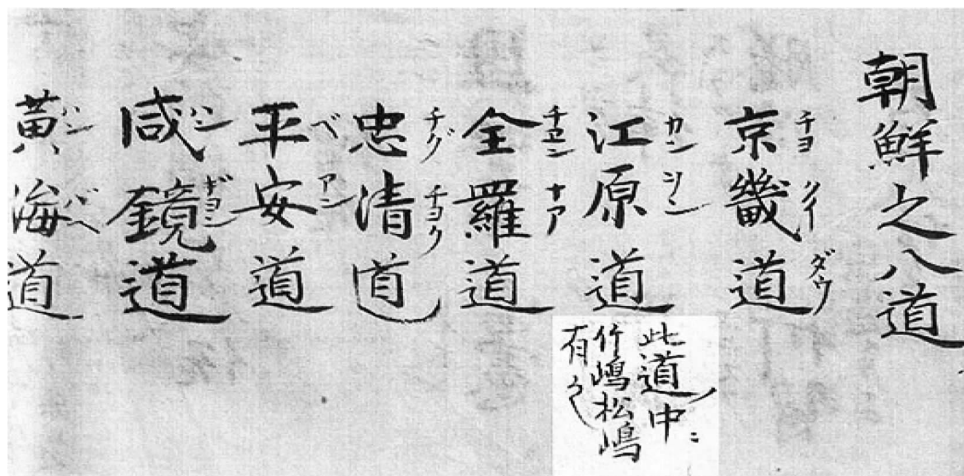 朝鮮之八道
京畿道
チヨ クイ ダウ
江原道
カン
此道中ニ
竹嶋松嶋
有之
全羅道
ナア
忠清道
チグ チヨク
平安道
ベ アン
咸鏡道
ハン ギヨン
黄海道